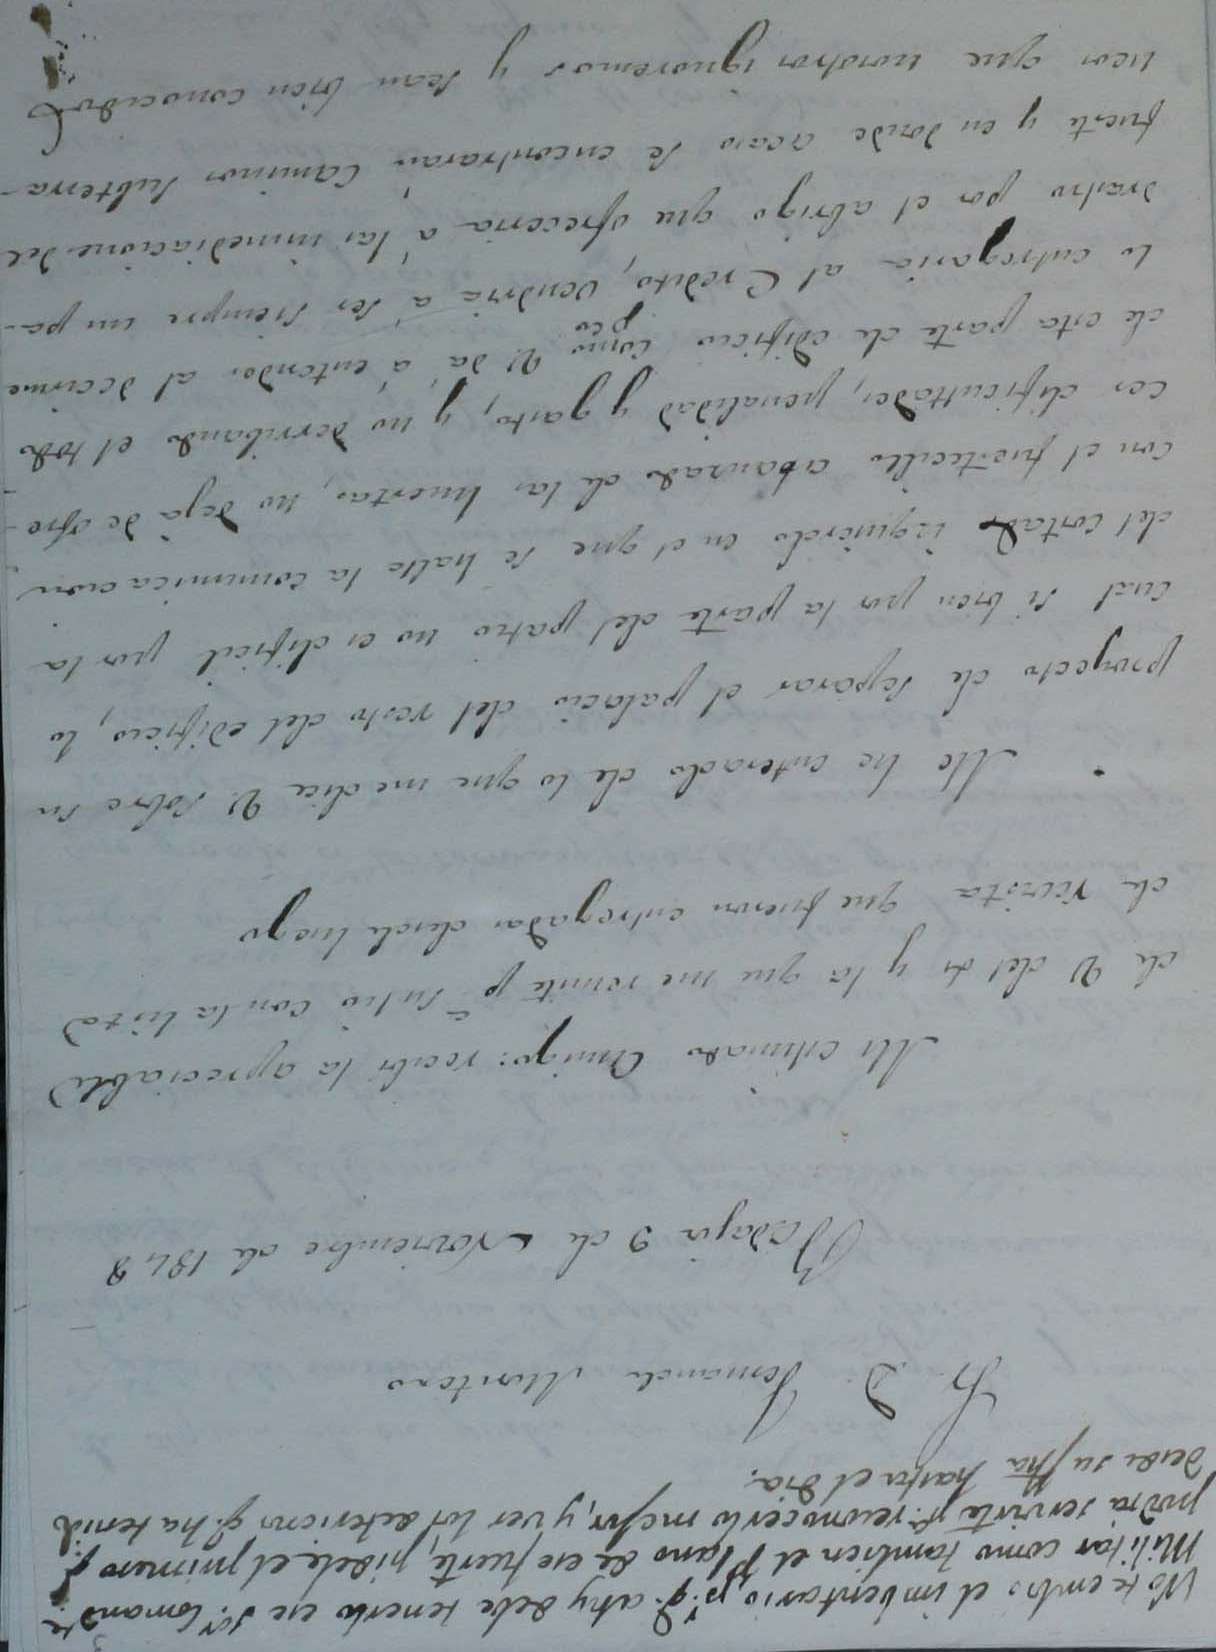 No te embio el imbentario, p.r q.e ahy debe tenerlo ese S.or Comand.te
Militar como tambien el Plano de ese fuerte, pidele el primero q.e
podra servirte p.a reconocerlo mejor, y ver los deterioros q.e ha tenido
desde su fha hasta el dia.
S. D. Fernando Montero
Badajoz 9 de Noviembre de 1842
Mi estimado Amigo: recibi la apreciable
de V del 1 y la que me remite p.a Julio con la lista
de revista que fueron entregadas desde luego
Me he enterado de lo que me dice V. sobre su
proyecto de separar el palacio del resto del edificio, lo
cual si bien por la parte del patio no es dificil por la
del costado izquierdo en el que se halla la comunicacion
con el puestecillo abanzado de las huertas, no deja de ofre-
cer dificultades, penalidad y gasto, y no derribando el todo
de esta parte de edificio como V. da á entender al decirme
lo entregaria al Credito, vendria á ser siempre un pa-
drastro por el abrigo que ofreceria á las inmediaciones del
fuerte y en donde acaso se encontraran caminos subterra-
neos que nosotros ignoremos y sean bien conocidos